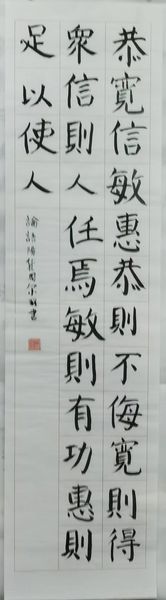 恭寬信敏惠恭則不侮寬則得
衆信則人任焉敏則有功惠則
足以使人
論語陽貨